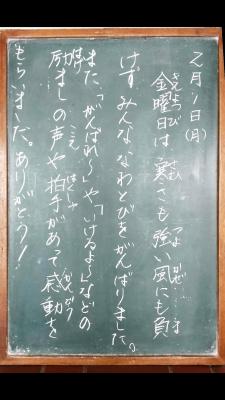 2月1日(月)
金曜日は寒さも強い風にも負
けずみんななわとびをがんばりました。
また、「がんばれ〜」や「いけるよ〜」などの
励ましの声や拍手があって感動を
もらいました。ありがとう!